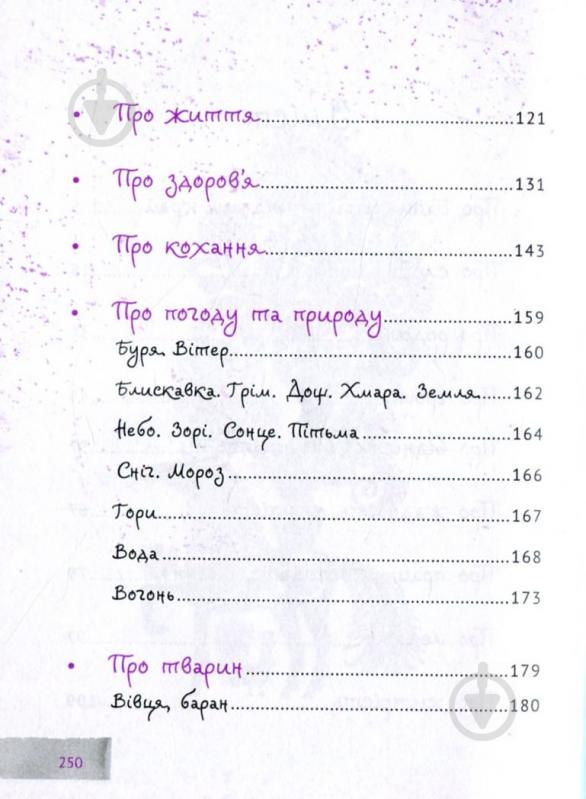 • Про життя.....121
• Про здоров'я.....131
• Про кохання.....143
• Про погоду та природу.....159
Буря. Вітер.....160
Блискавка. Грім. Дощ. Хмара. Земля.....162
Небо. Зорі. Сонце. Пітьма.....164
Сніг. Мороз.....166
Гори.....167
Вода.....168
Вогонь.....173
• Про тварин.....179
Вівця, баран.....180
250